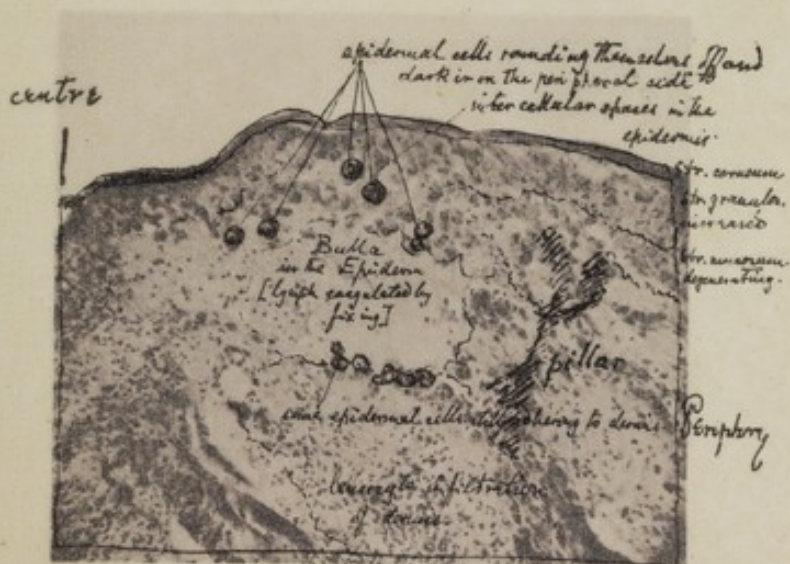 centre
epidermal cells rounding themselves off and
on the peripheral side
inter cellular spaces in the
epidermis.
Str. corneum
Str. granulos.
increased
Str. mucosum
degenerating.
Bulla
in the Epiderm
[lymph coagulated by
fixing]
pillar
some epidermal cells still adhering to dermis
Periphery
leucocyte infiltration
of dermis